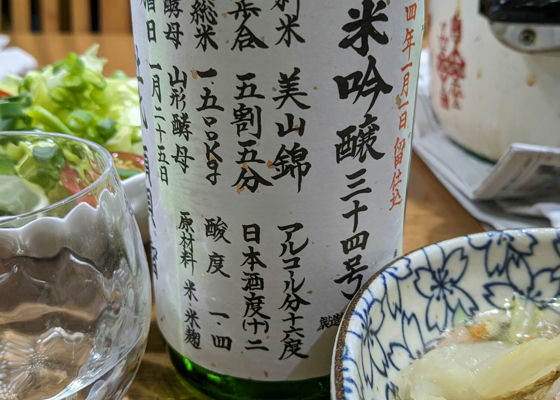 四年一月一日 留仕込
米吟醸三十四号
製造
米 美山錦 アルコル分十六度
歩合 五割五分 日本酒度(十)二
総米 一.五〇〇Kg 酸度 一.四
酵母 山形酵母 原材料 米・米麹
日 一月二十五日